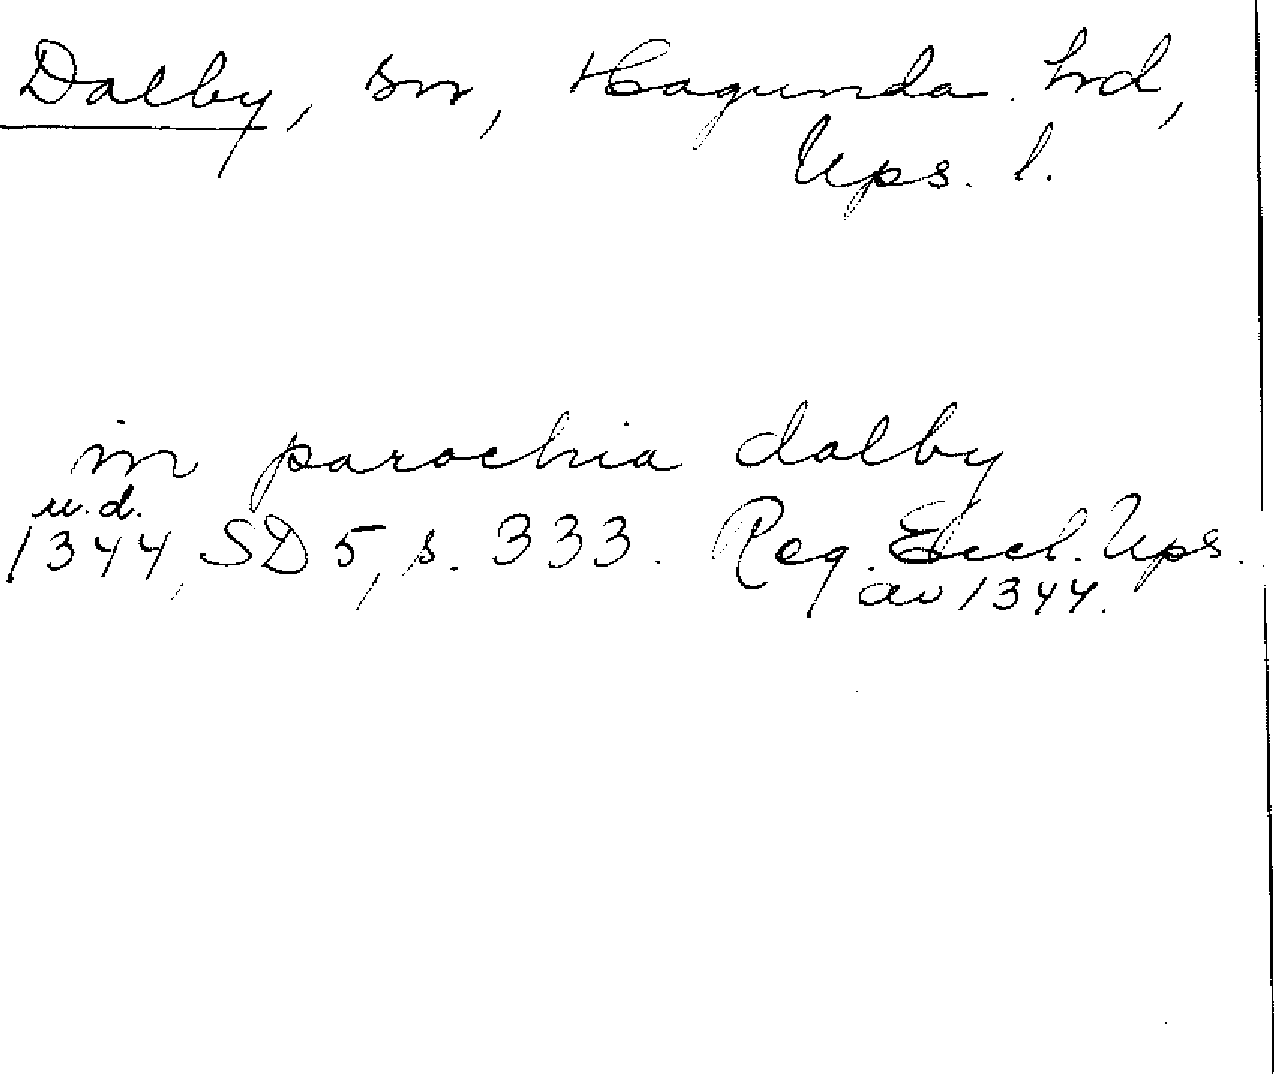 Dalby, sn, Hagunda hd,
Ups. l.
in parochia dalby
u.d.
1344, SD 5, s. 333. Reg. Eccl. Ups.
av 1344.